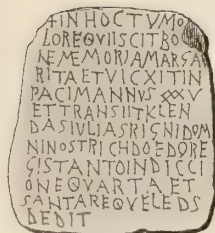 +INHOCTVMO
LOREQVIISCITBO
NEMEMORIAMARSA
RITAETVICXITIN
PACIMANNVS XXXV
ETTRANSIITKLEN
DASIVLIASRIGNIDOM
NINOSTRICHDOEDORE
GISTANTOINDICCI
ONEQVARTAET
SANTAREQVELEDS
DEDIT